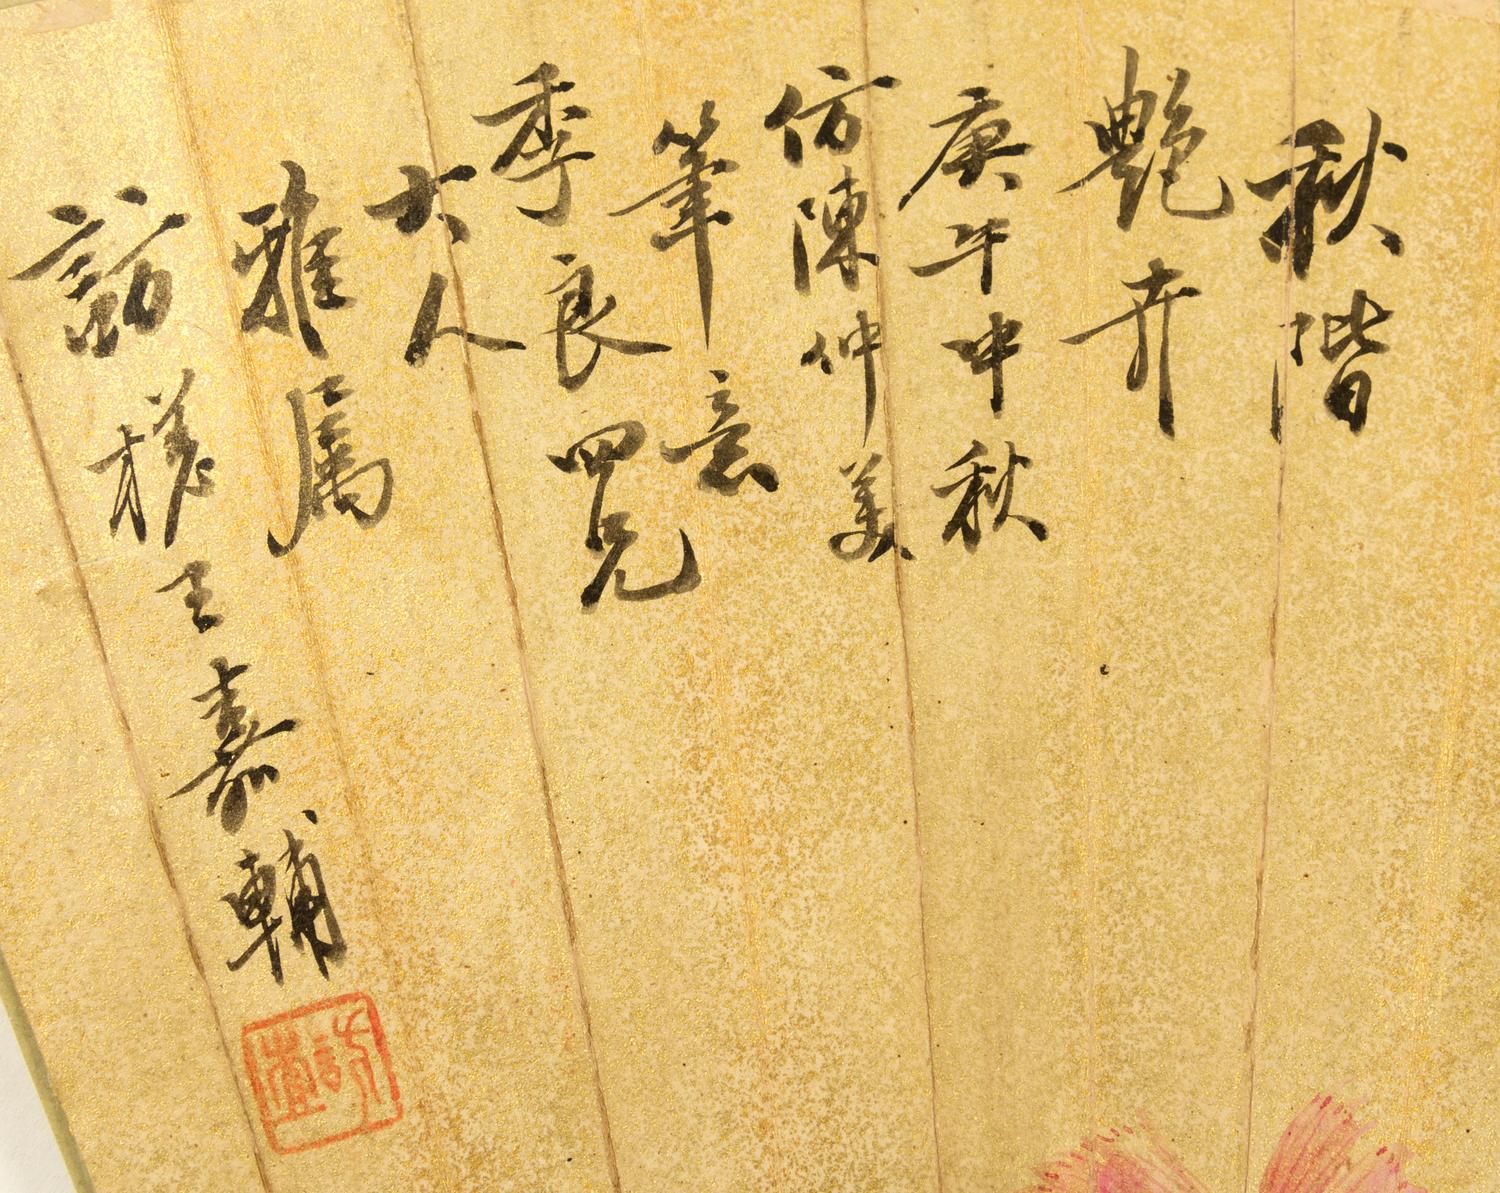 秋階
艷卉
庚午中秋
仿陳仲美
筆意
季良四兄
大人
雅属
訪槎王嘉輔
訪